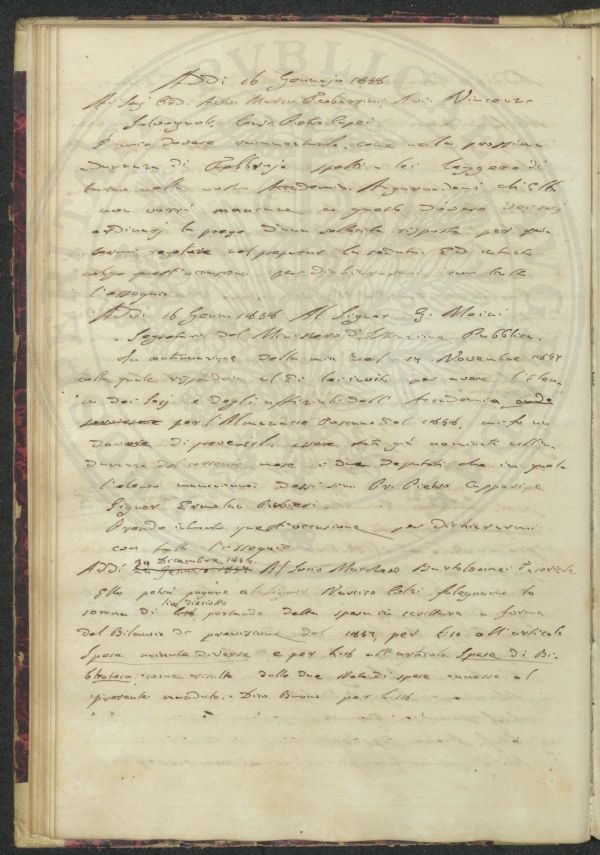 Addi 16 Gennajo 1858
Ai Soci Ord. Avv. Marco Tabarrini, Avv. Vincenzo
Salvagnoli, Cons. Pietro Capei
È mio dovere rammentarle, come nella prossima
adunanza di Febbrajo spetti a lei leggere di
turno nella nostra Accademia. Augurandomi ch'Ella
non vorrà mancare a questo dovere dei soci
ordinarj la prego d'una sollecita risposta per mia
norma regolare nel preparar la seduta. Ed intanto
colgo quest'occasione per dichiararmi con tutto
l'ossequio
Addi 16 Genn. 1858 Al Signor G. Meini
Segretario del Ministero d'Istruzione Pubblica.
In continuazione della mia del 14 Novembre 1857
colla quale rispondeva al di lei invito per avere l'Elenco
dei Soci e degli uffiziali dell'Accademia onde
per l'Almanacco Toscano del 1858, mi fo un
dovere di prevenirla essere stati già nominati nell'a-
dunanza del corrente mese i due Deputati che in quel-
l'elenco mancavano dessi sono Pr. Pietro Capparipe
Signor Ermolao Rubieri
Prendo intanto quest'occasione per dichiararmi
con tutto l'ossequio
Addi 29 Dicembre 1857 Al Socio Marchese Bartolommei Tesoriere
Ella potrà pagare al Signor Narciso Colzi falegname la
somma di lire diciotto portando detta spesa in scrittura a forma
del Bilancio di previsione del 1857 per L. 10 all'articolo
Spese minute diverse e per L. all'articolo Spese di Bi-
blioteca, come risulta dalle due Note di spese annesse al
presente mandato. Dico Buono per L. 18